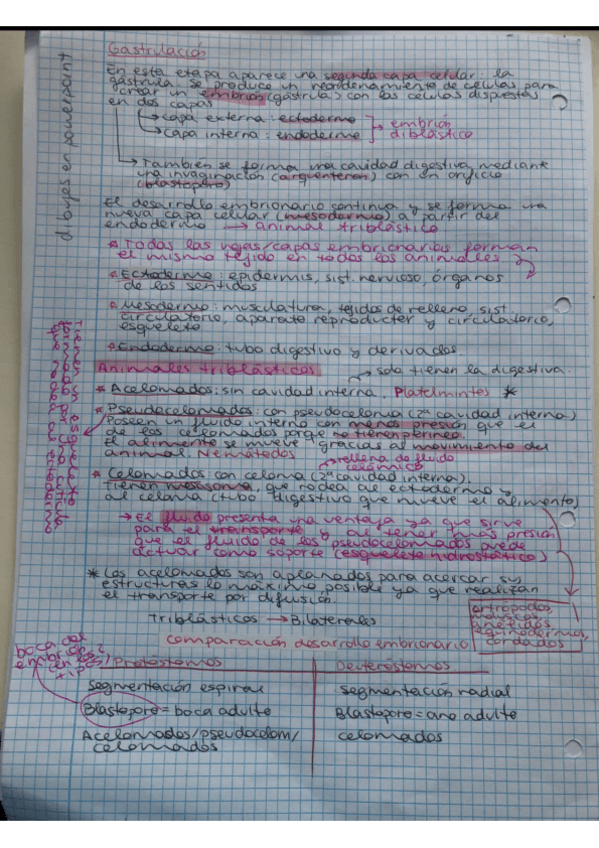 dibujos en powerpoint
Gastrulación
En esta etapa aparece una segunda capa celular: la
gástrula se produce un reordenamiento de células para
crear un embrión (gástrula) con las células dispuestas
en dos capas
capa externa: ectodermo
capa interna: endodermo
embrión
diblástico
También se forma una cavidad digestiva mediante
una invaginación (arquenteron) con un orificio
(blastoporo)
El desarrollo embrionario continua y se forma una
nueva capa celular (mesodermo) a partir del
endodermo → animal triblástico
* Todas las hojas/capas embrionarias forman
el mismo tejido en todos los animales
* Ectodermo: epidermis, sist. nervioso, órganos
de los sentidos
* Mesodermo: musculatura, tejidos de relleno, sist.
circulatorio, aparato reproductor y circulatorio,
esqueleto
* Endodermo: tubo digestivo y derivados
Animales triblásticos
solo tienen la digestiva.
* Acelomados: sin cavidad interna. Platelmintos *
* Pseudocelomados: con pseudoceloma (2ª cavidad interna)
Poseen un fluido interno con menos presión que el
de los celomados porque no tienen
El alimento se mueve gracias al movimiento del
animal. Nemátodos
rellena de fluido
celómico
* Celomados con celoma (2ª cavidad interna).
tienen que rodea al ectodermo y
al celoma (tubo digestivo que mueve el alimento)
→ el fluido presenta una ventaja ya que sirve
para el transporte y al tener más presión
que el fluido de los pseudocelomados puede
actuar como soporte (esqueleto hidrostático)
* Los acelomados son aplanados para acercar sus
estructuras lo máximo posible ya que realizan
el transporte por difusión.
artrópodos,
moluscos,
anélidos,
equinodermos,
cordados
Triblásticos → Bilaterales
comparación desarrollo embrionario
boca del
Protóstomos
Deuteróstomos
Segmentación espiral
Segmentación radial
Blastoporo = boca adulto
Blastoporo = ano adulto
Acelomados/pseudocelom/
celomados
celomados